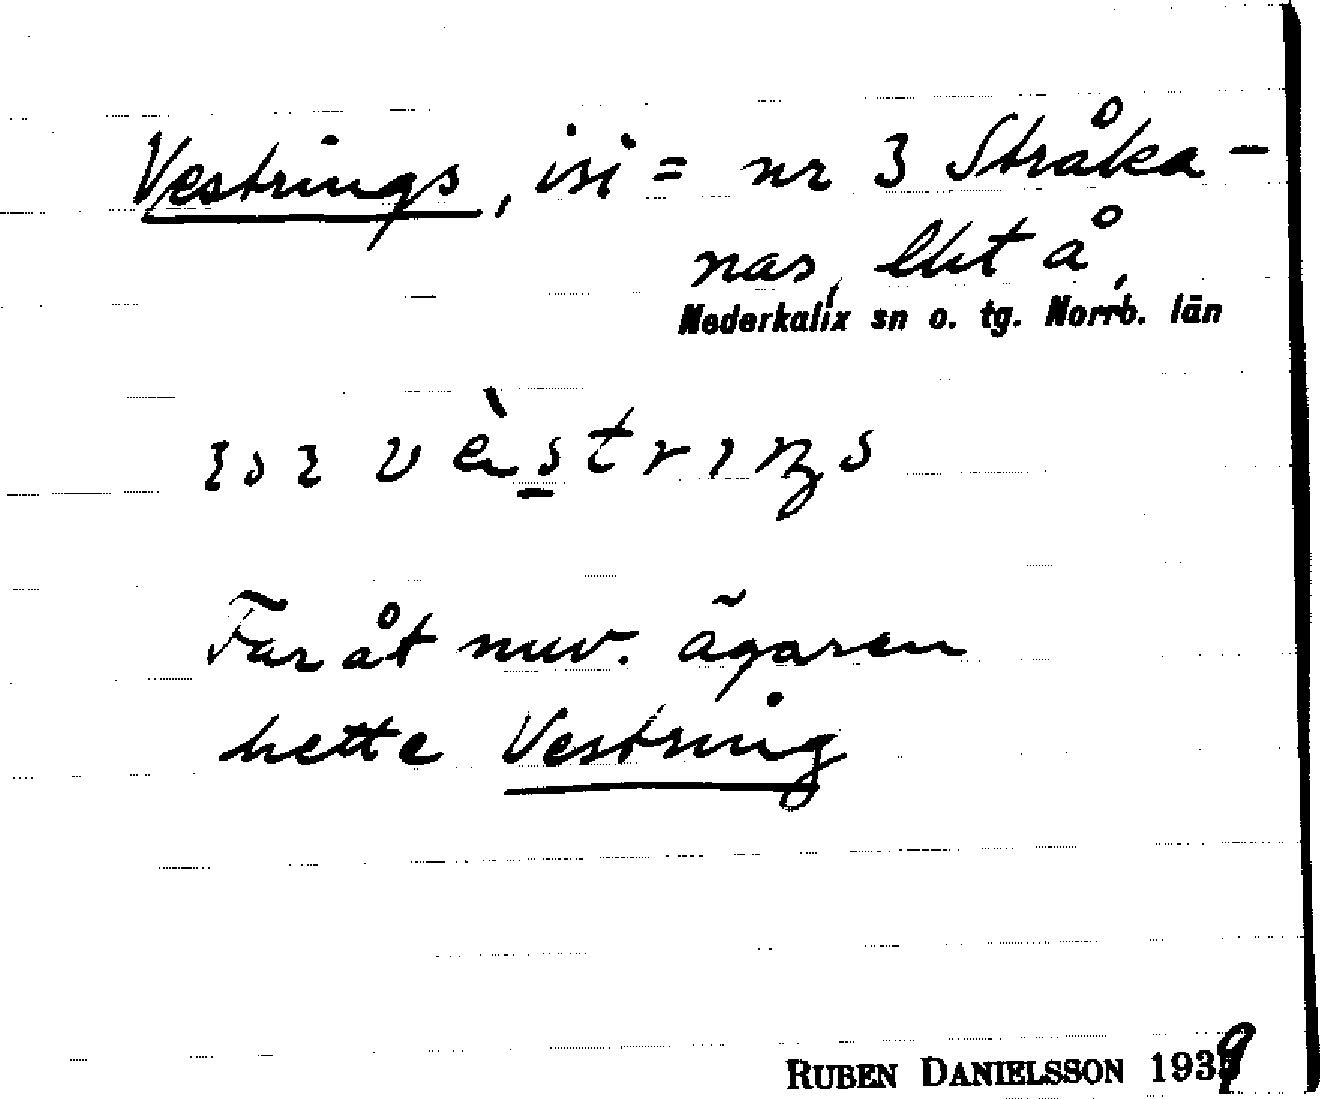 Vestrings, isi = nr 3 Stråka-
nas,
Nederkalix sn o. tg. Norrb. län
Far åt nuv. ägaren
hette Vestring
RUBEN DANIELSSON 1939